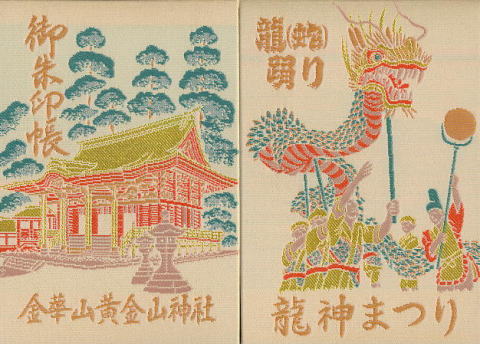 御朱印帳
金華山黄金山神社
龍(蛇)
踊り
龍神まつり